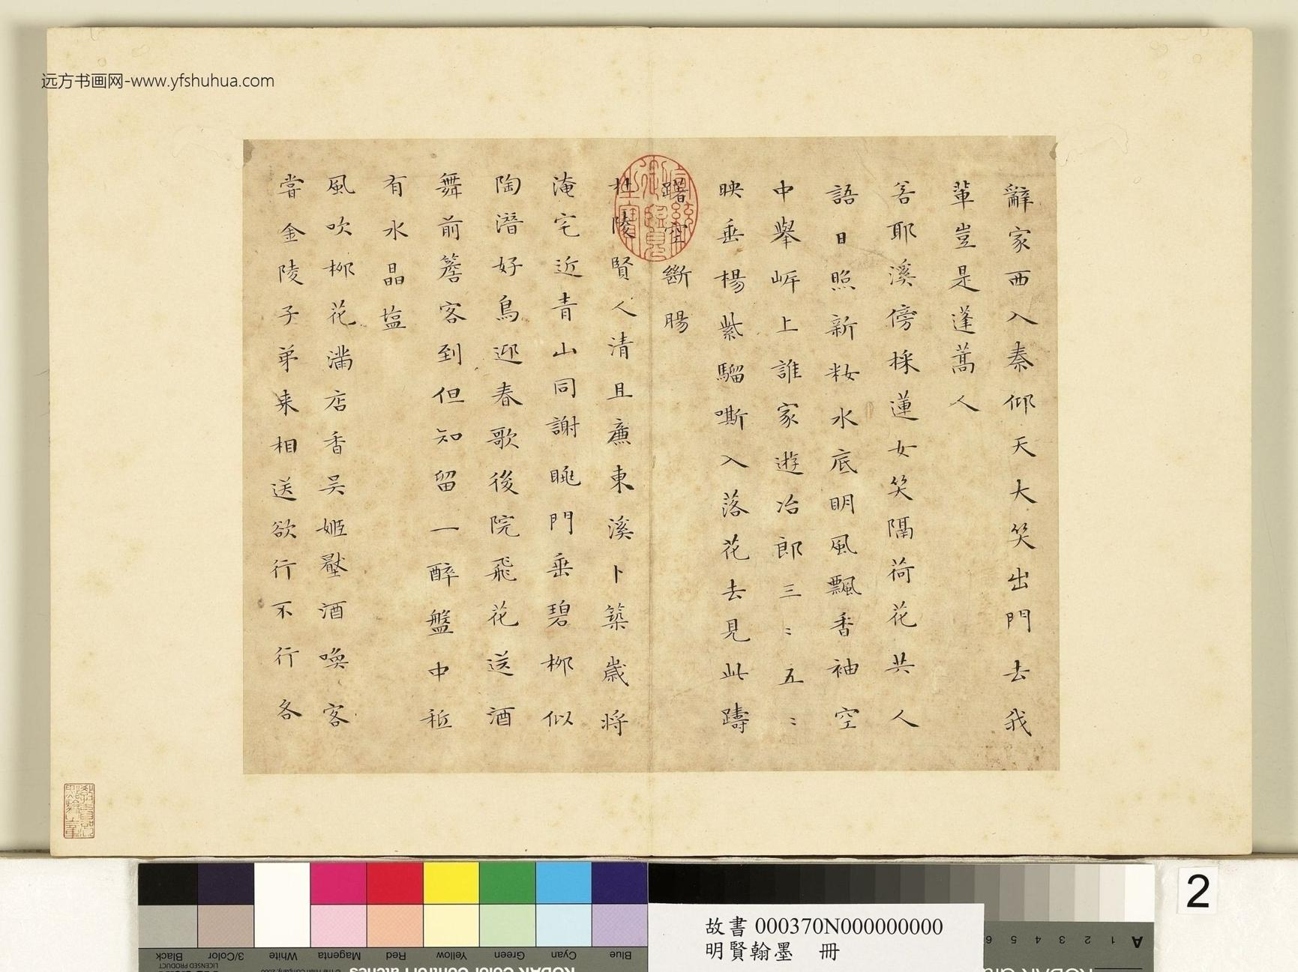 远方书画网-www.yfshuhua.com
辭家西入秦仰天大笑出門去我
輩豈是蓬蒿人
若耶溪傍採蓮女笑隔荷花共人
語日照新妝水底明風飄香袖空
中舉岸上誰家遊冶郎三〻五〻
映垂楊紫騮嘶入落花去見此躊
躇空斷腸
杜陵賢人清且廉東溪卜築歲將
淹宅近青山同謝眺門垂碧柳似
陶潛好鳥迎春歌後院飛花送酒
舞前簷客到但知留一醉盤中秪
有水晶塩
風吹柳花滿店香吳姬壓酒喚客
嘗金陵子弟来相送欲行不行各
2
故書 000370N000000000
明賢翰墨 冊
Blue
Cyan
Green
Yellow
Red
Magenta
White
3/Color
Black
LICENSED PRODUCT
A 1 2 3 4 5 6